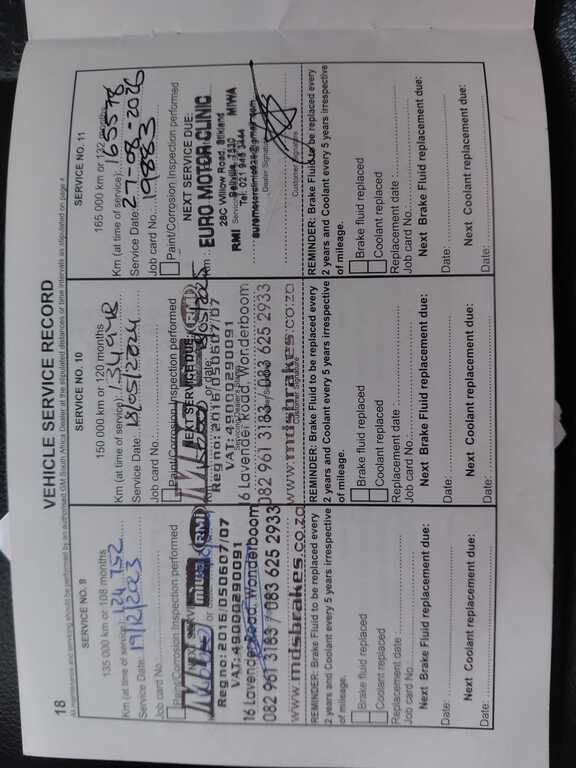 18
VEHICLE SERVICE RECORD
All maintenance and servicing should be performed by an authorised GM South Africa Dealer at the stipulated distances or time intervals as stipulated on page 4
SERVICE NO. 9
135 000 km or 108 months
Km (at time of service): 124 752
Service Date: 19/12/2023
Job card No.:
Paint/Corrosion Inspection performed
mids RMI
Reg no: 2016/050607/07
VAT: 4900290091
16 Lavender Road, Wonderboom
082 961 3183 / 083 625 2933
www.mdsbrakes.co.za
REMINDER: Brake Fluid to be replaced every
2 years and Coolant every 5 years irrespective
of mileage.
Brake fluid replaced
Coolant replaced
Replacement date :
Job card No.
Next Brake Fluid replacement due:
Date:
Next Coolant replacement due:
Date:
SERVICE NO. 10
150 000 km or 120 months
Km (at time of service):
Service Date: 18/05/2024
Job card No.:
Paint/Corrosion Inspection performed
NEXT SERVICE DUE:
RMI
or date:
Reg no: 2016/050607/07
VAT: 4900290091
16 Lavender Road, Wonderboom
082 961 3183 / 083 625 2933
www.mdsbrakes.co.za
Customer Signature
REMINDER: Brake Fluid to be replaced every
2 years and Coolant every 5 years irrespective
of mileage.
Brake fluid replaced
Coolant replaced
Replacement date :
Job card No.
Next Brake Fluid replacement due:
Date:
Next Coolant replacement due:
Date:
SERVICE NO. 11
165 000 km or 132 months
Km (at time of service): 165578
Service Date: 27-08-2026
Job card No.: 19883
Paint/Corrosion Inspection performed
NEXT SERVICE DUE:
EURO MOTOR CLINIC
28C Willow Road, Stikland
Bellville 7530
RMI MIWA
Tel: 021 949 3444
Dealer Signature
Customer Signature
REMINDER: Brake Fluid to be replaced every
2 years and Coolant every 5 years irrespective
of mileage.
Brake fluid replaced
Coolant replaced
Replacement date :
Job card No.:
Next Brake Fluid replacement due:
Date:
Next Coolant replacement due:
Date: